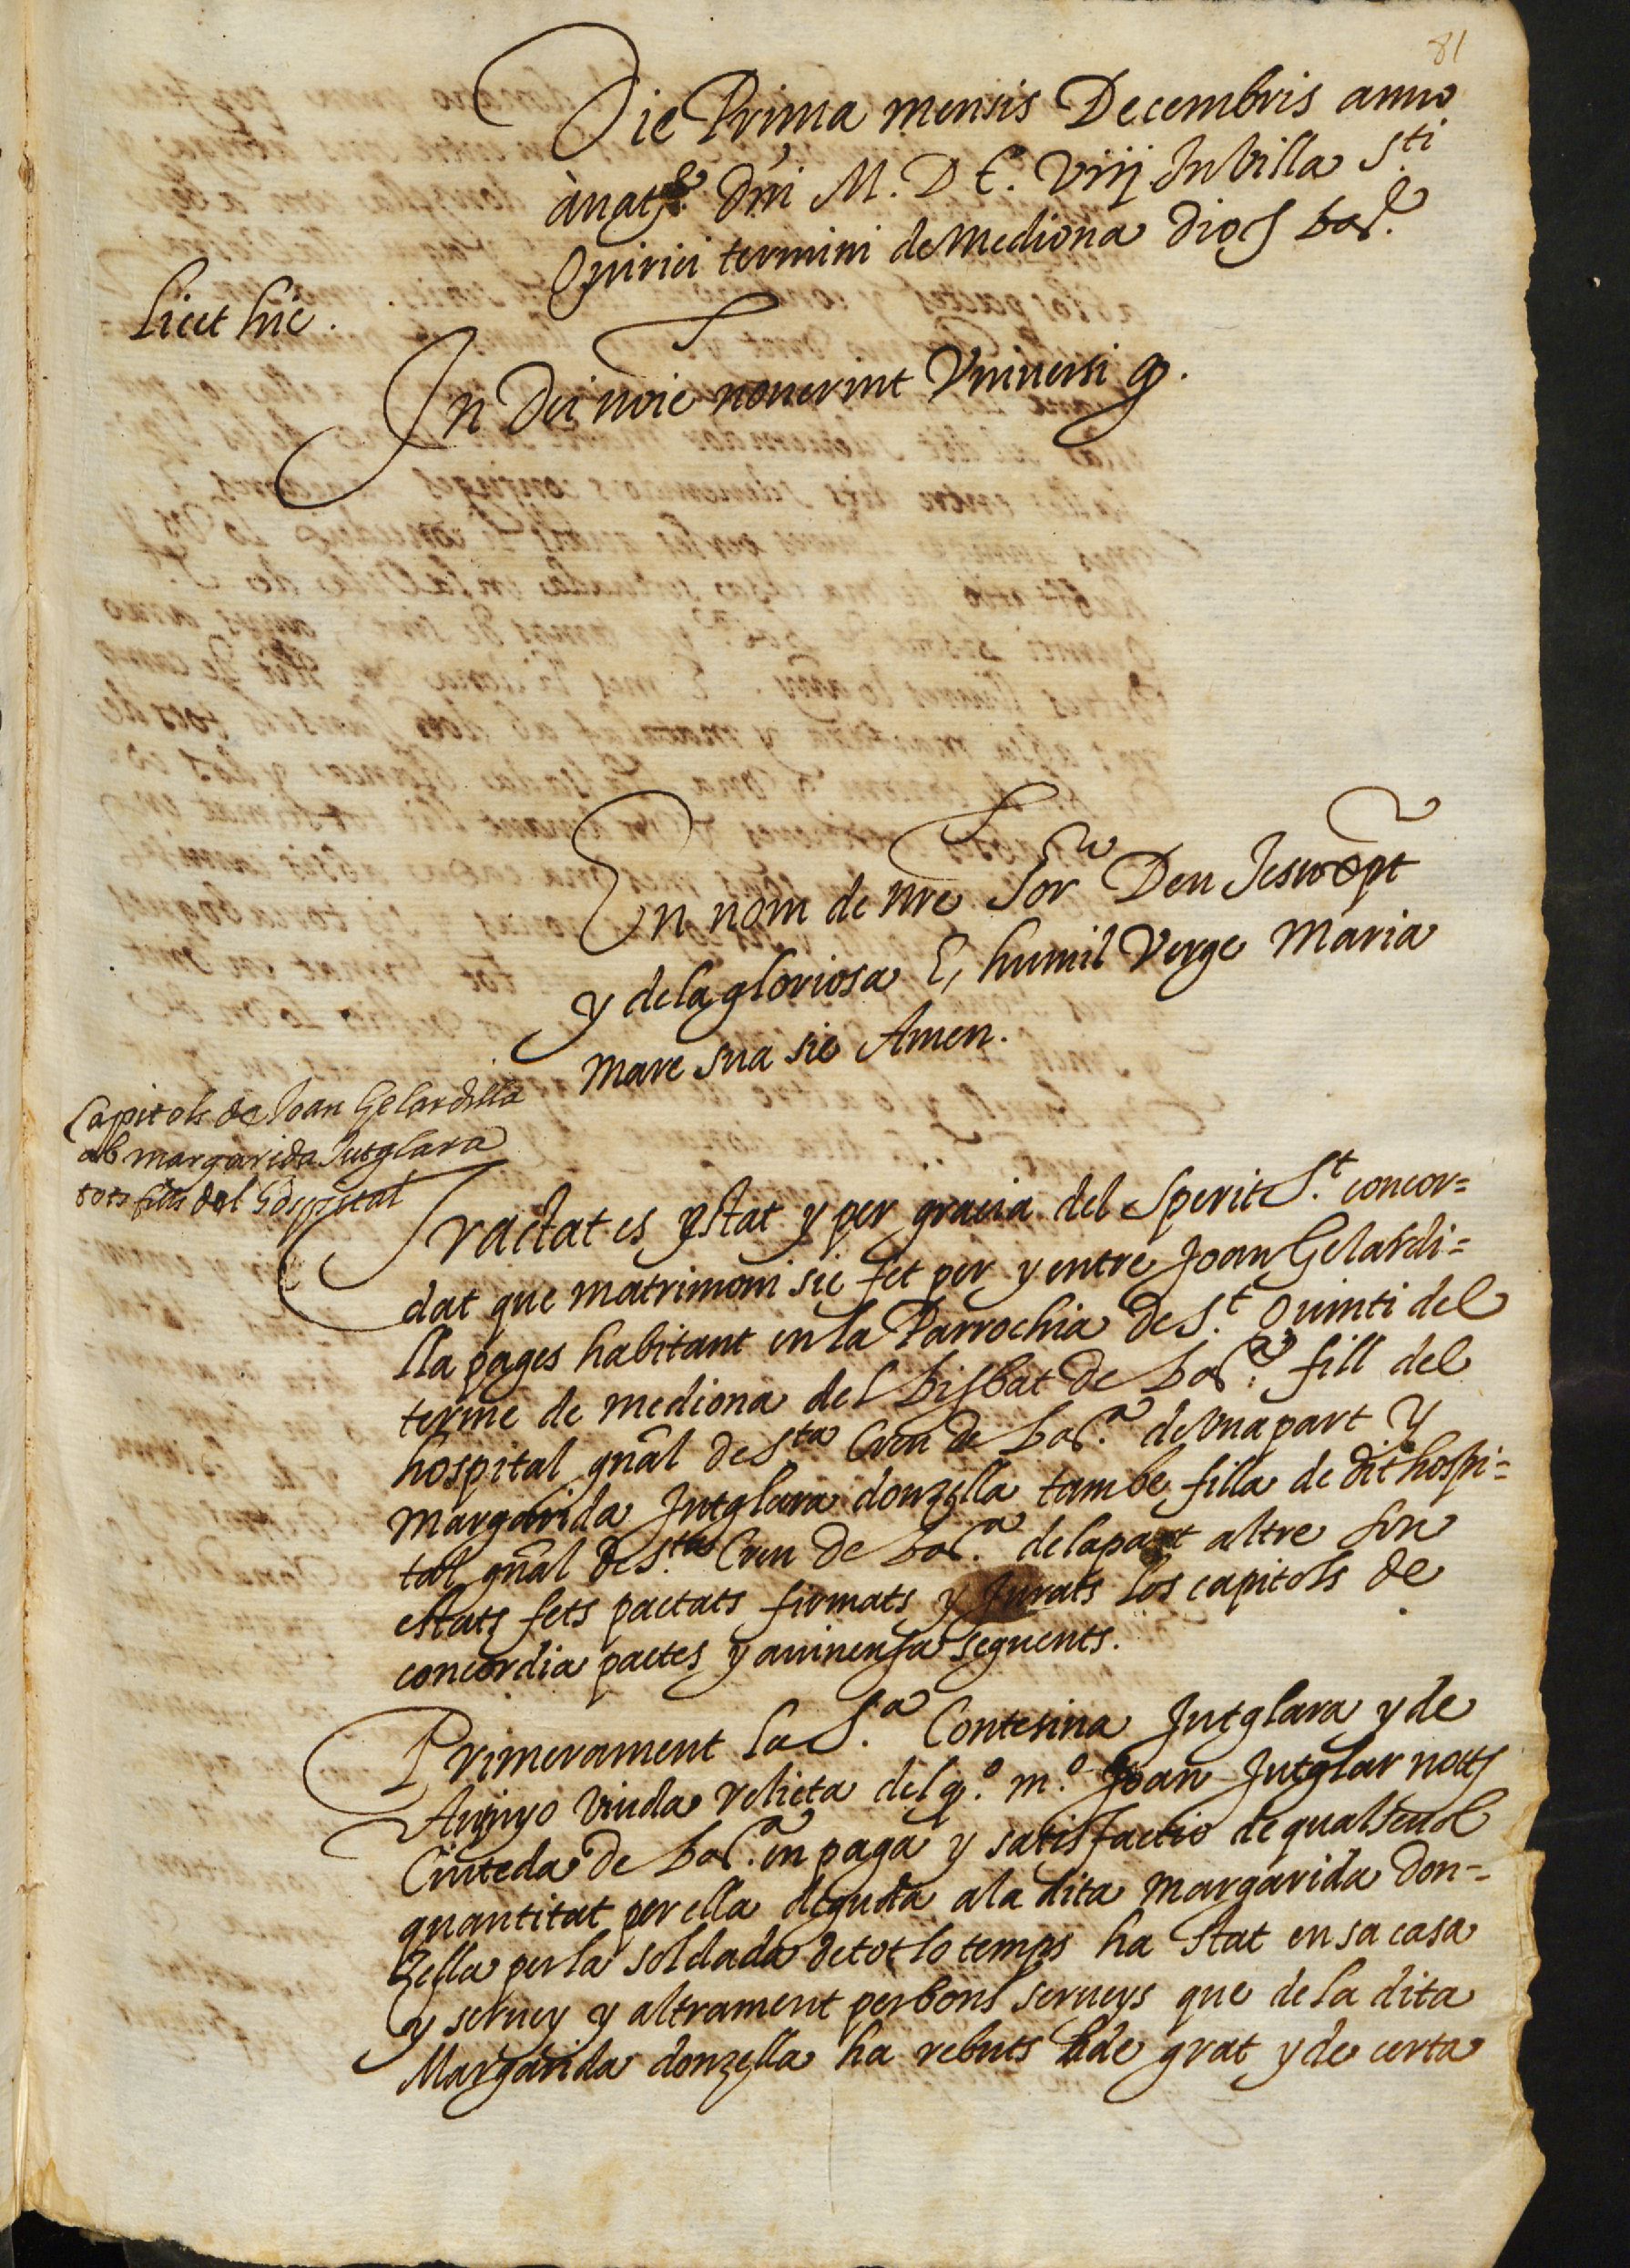 81
Die Prima mensis Decembris anno
à natᵉ. Dñi M. D C. Viij In Villa Sti
Quirici termini de Mediona dioς barᵉ.
licet hic.
In Dei noîe nouerint Vniuersi q.
En nom de nre Sor Deu Jesu xp̃t
y dela gloriosa E, humil Verge Maria
mare sua sie Amen.
Capitols de Joan Gelardilla
ab margarida Jutglara
tots fills del Hospital
Tractat es ystat y per gracia del Sperit S.t concor=
dat que matrimoni sie fet per y entre Joan Gelardi=
lla pages habitant en la Parrochia de S.t Quinti del
terme de mediona del bisbat de bar.ª fill del
hospital gñal de Sta Creu de bar.ª de vna part y
margarida Jutglara donzella tambe filla de dit hospi=
tal gñal de S.ta Creu de bar.ª dela part altre son
estats fets pactats firmats y Jurats los capitols de
concordia pactes y auinensa seguents.
Primerament la S.ª Contesina Jutglara y de
Anyo viuda relicta del q.º m.º Joan Jutglar notς
Ciuteda de bar.ª en paga y satisfactio de qualseuol
quantitat per ella deguda a la dita Margarida Don=
zella per la soldada de tot lo temps ha stat en sa casa
y seruey y altrament per bons serueys que de la dita
Margarida donzella ha rebuts de grat y de certa